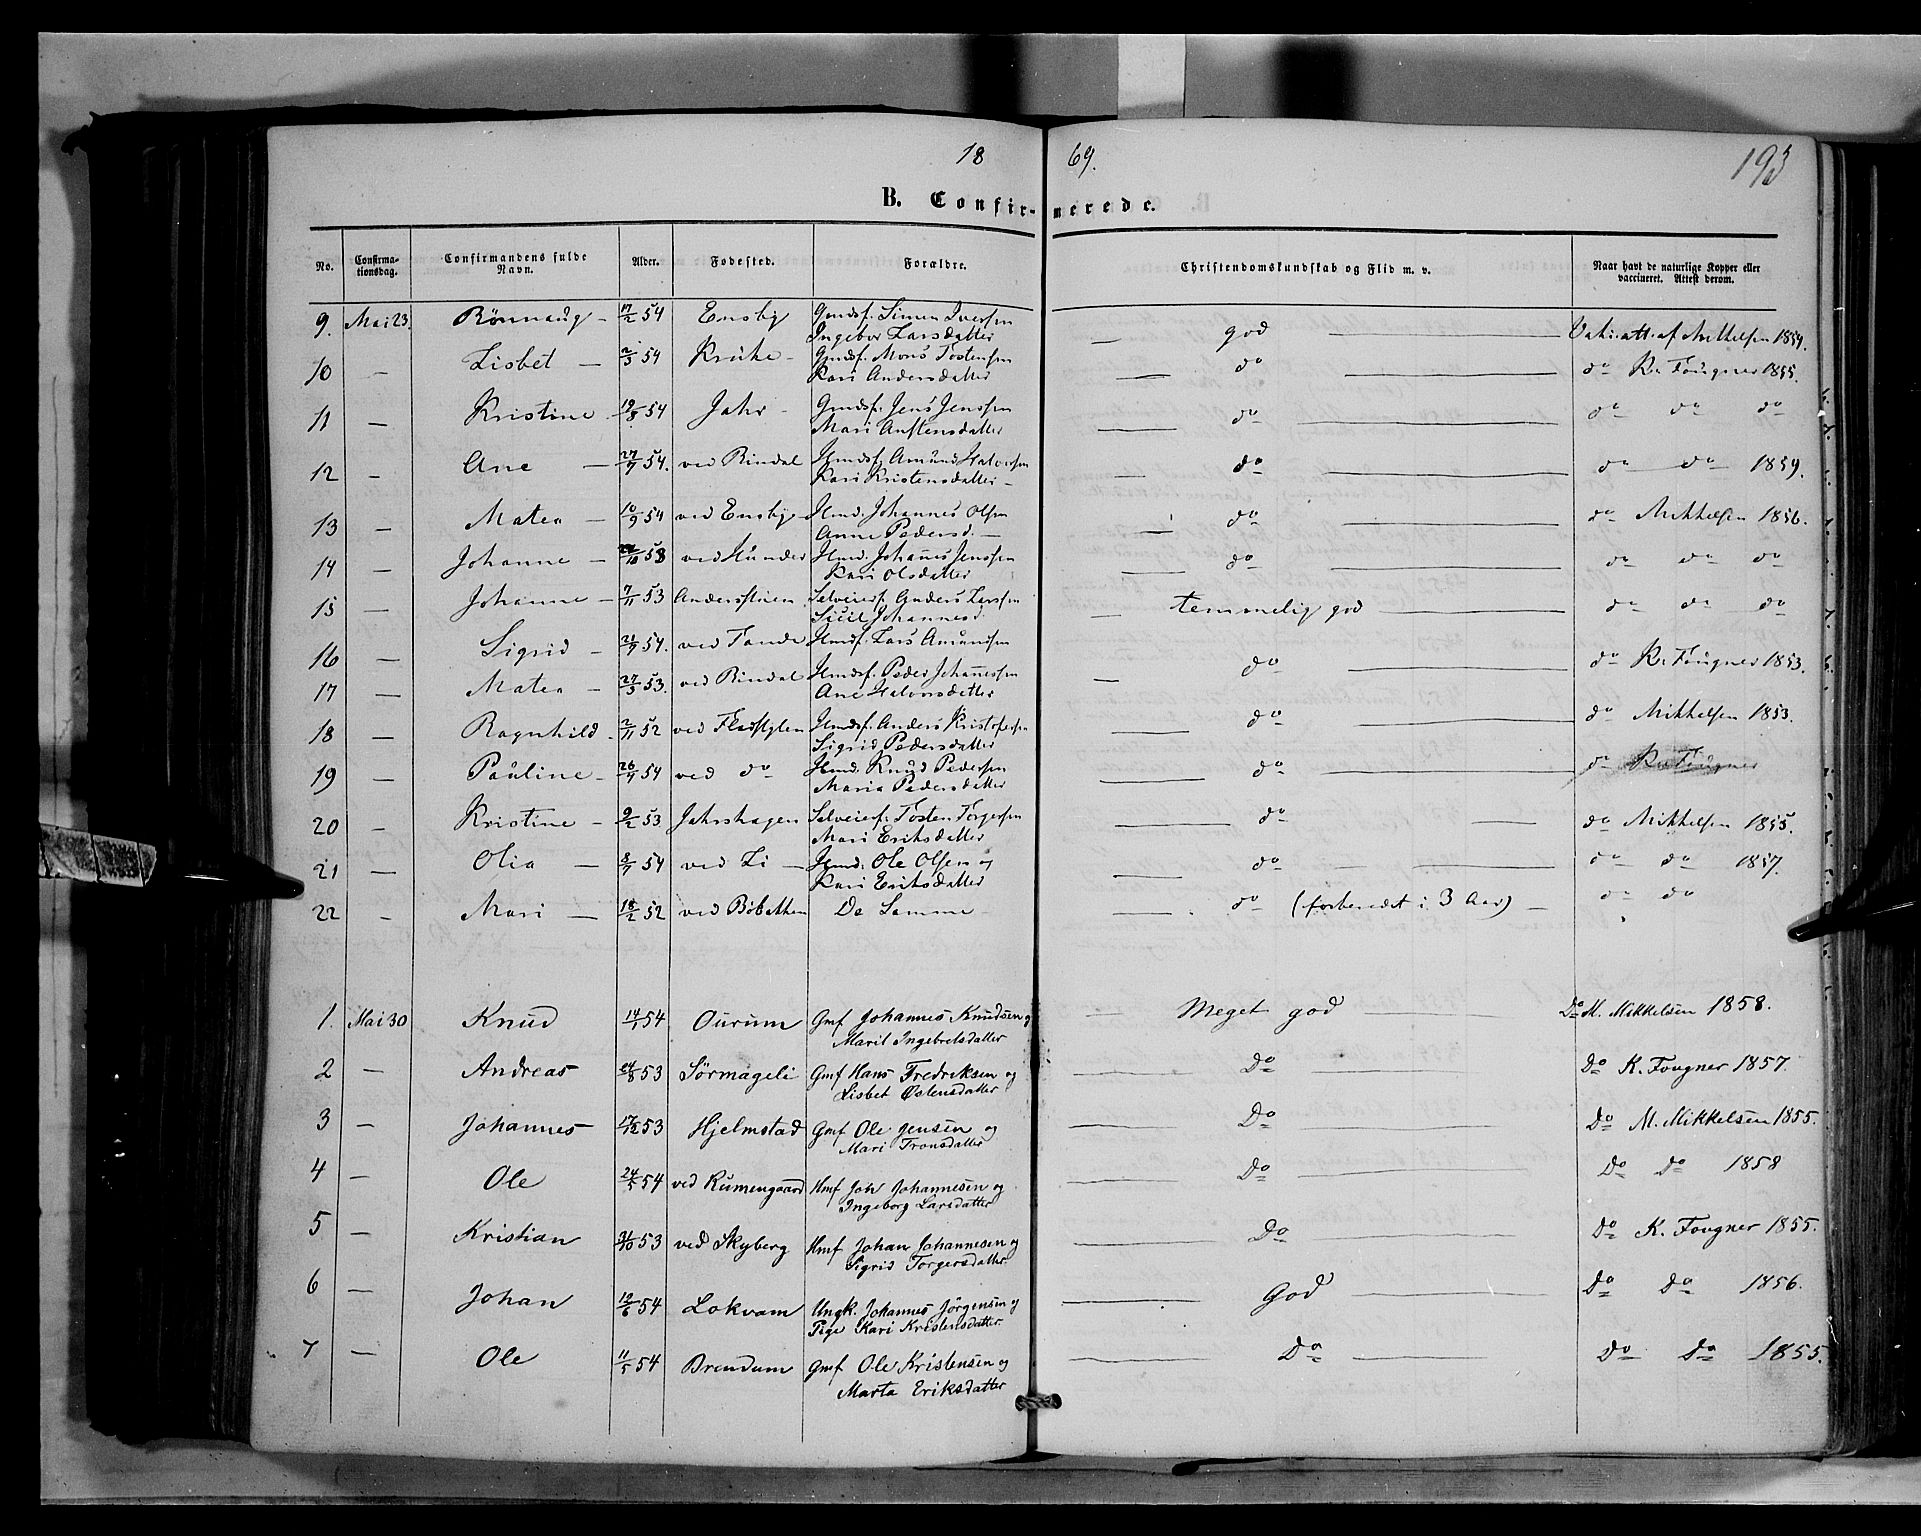 18 69. 193
B. Confirmerede.
No. Confirmationsdag. Confirmandens fulde Navn. Alder. Fødested. Forældre. Christendomskundskab og Flid m. v. Naar havt de naturlige Kopper eller vaccineret. Attest derom.
9. Mai 23. Rönnaug - 17/2 54 Ensby Gmdsf. Simen Iversen — god — Vakc. att. af Mikkelsen 1854.
Ingebor Larsdatter
10 — Lisbet — 2/3 54 Kruke - Gmdsf. Mons Tostensen — do — do K. Fougner 1855.
Kari Andersdatter
11 — Kristine - 54 Jahr - Gmdsf. Jens Jenssen — do — do do do
Mari Anstensdatter
12 — Ane — 54. ved Rindal Hmdsf. Amund Halvorsen — do — do do 1859.
Kari Kristensdatter -
13 — Matea — 10/9 54 ved Ensby Hmd. Johannes Olsen — do — do Mikkelsen 1856.
Anne Pedersd. —
14 — Johanne — 53 ved Hunder Hmd. Johanes Jenssen — do — do do do
Kari Olsdatter
15 — Johanne — 7/11 53 Andersstuen Selveierf. Anders Larssen — temmelig god — do do do
Sicil Johannesd.
16 — Sigrid — 54. ved Tande Hmdsf. Lars Amundsen — do — do K. Fougner 1853.
17 — Matea — 27/3 53. ved Rindal Hmdsf. Peder Johanessen —
Ane Halvorsdatter
18 — Ragnhild - 2/11 52 ved Hmdsf. Anders Kristofersen — do — do Mikkelsen 1853.
Sigrid Pedersdatter
19 — Pauline - 54 ved do Hmd. Knud Pedersen — do — do K. Fougner
Maria Pedersdatter
20 — Kristine — 9/2 53 Jahrshagen Selveierf. Tosten Torgersen — do — do Mikkelsen 1855.
Mari Eriksdatter
21 — Olia — 54 ved Li — Hmd. Ole Olsen og — do — do do 1857.
Kari Eriksdatter
22 — Mari — 18/2 52 ved De Samme — do (forberedet i 3 Aar) — do do
1. Mai 30 Knud 14/1 54 Ourum Gmf Johannes Knudsen og — Meget god — Do M. Mikkelsen 1858.
Marit Ingebretsdatter
2 — Andreas 53 Sörmageli Gmf Hans Fredriksen og — Do — Do K. Fougner 1857.
Lisbet Östensdatter
3 — Johannes 17/12 53 Hjelmstad Gmf Ole Jensen og — Do — Do M. Mikkelsen 1855.
Mari Tronsdatter
4 — Ole 54 ved Rumengaard Hmf Joh Johannesen og — Do — Do Do 1858
Ingeborg Larsdatter
5 — Kristian 53 ved Skyberg Hmf Johan Johannesen og — Do — Do K. Fougner 1855.
Sigrid Torgersdatter
6 — Johan 12/6 54 Lokvam Ungk. Johannes Jörgensen og — God — Do Do 1856.
Pige Kari Kristensdatter
7 — Ole 11/5 54 Brendum Gmf Ole Kristensen og — Do — Do Do 1855.
Marta Eriksdatter